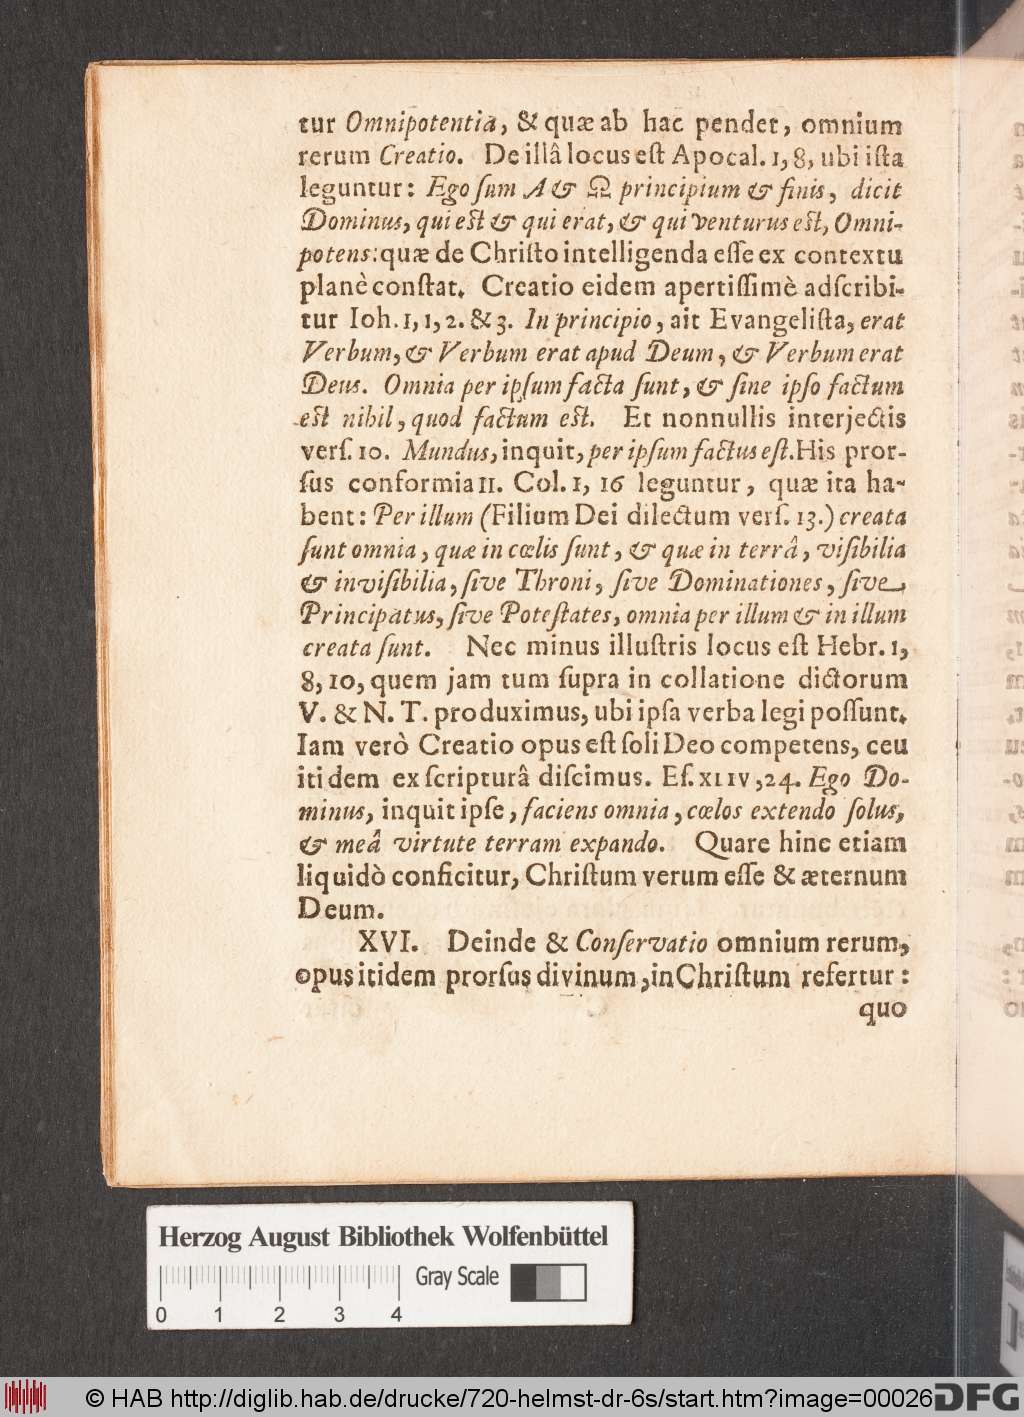 tur Omnipotentia, & quæ ab hac pendet, omnium
rerum Creatio. De illâ locus eſt Apocal. 1, 8, ubi iſta
leguntur: Ego ſum A & Ω principium & finis, dicit
Dominus, qui eſt & qui erat, & qui venturus eſt, Omni-
potens: quæ de Chriſto intelligenda eſſe ex contextu
planè conſtat. Creatio eidem apertiſſimè adſcribi-
tur Ioh. 1, 1, 2. & 3. In principio, ait Evangeliſta, erat
Verbum, & Verbum erat apud Deum, & Verbum erat
Deus. Omnia per ipſum facta ſunt, & ſine ipſo factum
eſt nihil, quod factum eſt. Et nonnullis interjectis
verſ. 10. Mundus, inquit, per ipſum factus eſt. His pror-
ſus conformia II. Col. 1, 16 leguntur, quæ ita ha-
bent: Per illum (Filium Dei dilectum verſ. 13.) creata
ſunt omnia, quæ in cœlis ſunt, & quæ in terrâ, viſibilia
& inviſibilia, ſive Throni, ſive Dominationes, ſive
Principatus, ſive Poteſtates, omnia per illum & in illum
creata ſunt. Nec minus illuſtris locus eſt Hebr. 1,
8, 10, quem jam tum ſupra in collatione dictorum
V. & N. T. produximus, ubi ipſa verba legi poſſunt.
Iam verò Creatio opus eſt ſoli Deo competens, ceu
itidem ex ſcripturâ diſcimus. Eſ. XLIV, 24. Ego Do-
minus, inquit ipſe, faciens omnia, cœlos extendo ſolus,
& meâ virtute terram expando. Quare hinc etiam
liquidò conficitur, Chriſtum verum eſſe & æternum
Deum.
XVI. Deinde & Conſervatio omnium rerum,
opus itidem prorſus divinum, in Chriſtum refertur:
quo
Herzog August Bibliothek Wolfenbüttel
Gray Scale
0 1 2 3 4
© HAB http://diglib.hab.de/drucke/720-helmst-dr-6s/start.htm?image=00026
DFG